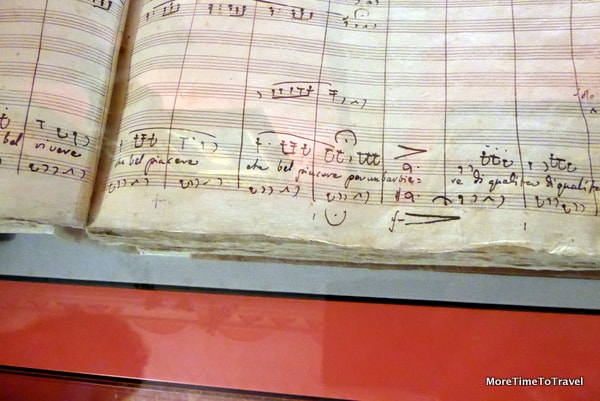 solo
bel vivere che bel piacere che bel piacere per un barbie= re di qualità di qualità
MoreTimeToTravel